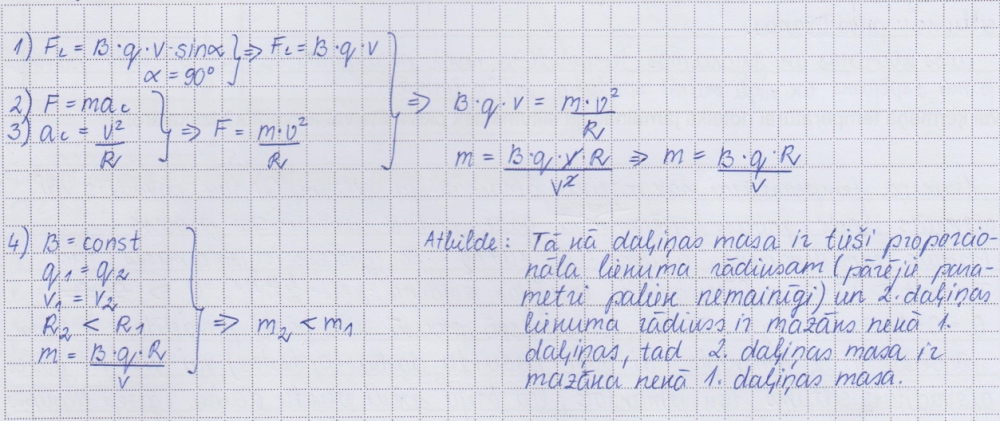 1) F_L = B·q·v·sinα } ⇒ F_L = B·q·v
α = 90°
2) F = ma_c
3) a_c = v²/R } ⇒ F = m·v²/R
⇒ B·q·v = m·v²/R
m = B·q·v·R/v² ⇒ m = B·q·R/v
4) B = const
q₁ = q₂
v₁ = v₂
R₂ < R₁ ⇒ m₂ < m₁
m = B·q·R/v
Atbilde: Tā kā daļiņas masa ir tieši proporcio-
nāla liekuma rādiusam (pārējie para-
metri paliek nemainīgi) un 2. daļiņas
liekuma rādiuss ir mazāks nekā 1.
daļiņas, tad 2. daļiņas masa ir
mazāka nekā 1. daļiņas masa.